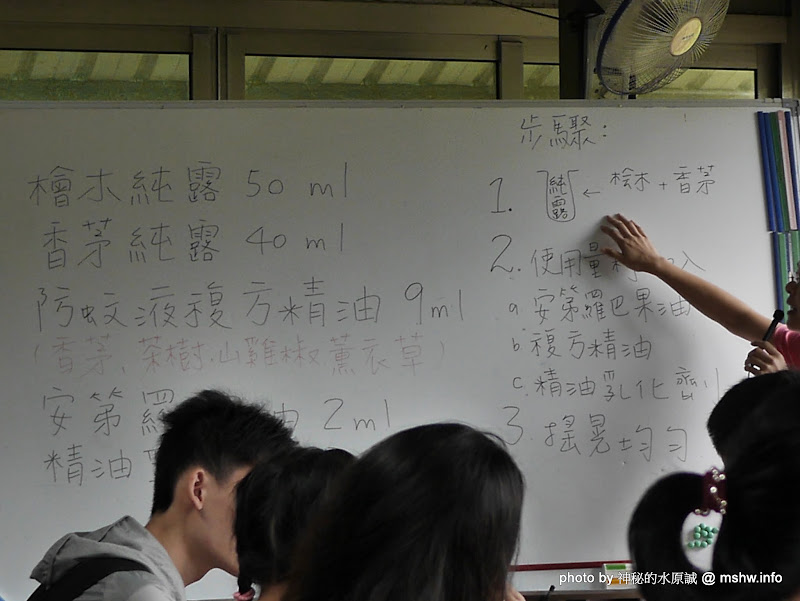 檜木純露 50 ml
香茅純露 40 ml
防蚊液複方精油 9ml
(香茅、茶樹.山雞椒薰衣草)
安第羅 油 2ml
精油
步驟:
1. 純露 ← 桧木 + 香茅
2. 使用量 入
a 安第羅巴果油
b 複方精油
c. 精油乳化劑
3. 搖晃均勻
photo by 神秘的水原誠 @ mshw.info